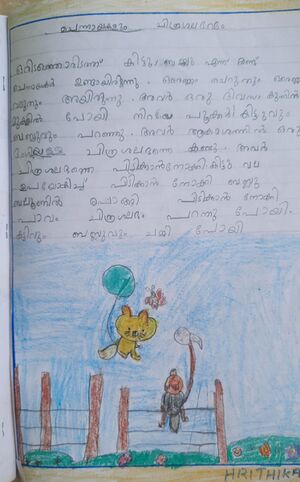 ചെന്നായകളും ചിത്രശലഭവും
ഒരിടത്തൊരിടത്ത് കിട്ടു, ബബ്ലു എന്ന് രണ്ട്
ചെന്നായകൾ ഉണ്ടായിരുന്നു. ഒരെണ്ണം ചെറുതും ഒരെണ്ണം
വലുതും ആയിരുന്നു. അവർ ഒരു ദിവസം കുന്നിൻ
മുകളിൽ പോയി നിറയെ കിട്ടുവും
ബബ്ലുവും പറഞ്ഞു. അവർ ആകാശത്തിൽ ഒരു
ഭംഗിയുള്ള ചിത്രശലഭത്തെ കണ്ടു. അവർ
ചിത്രശലഭത്തെ പിടിക്കാൻ നോക്കി കിട്ടു വല
ഉപയോഗിച്ച് പിടിക്കാൻ നോക്കി ബബ്ലു
ബലൂണിൻ പിടിക്കാൻ നോക്കി
പാവം ചിത്രശലഭം പറന്നു പോയി.
കിട്ടുവും ബബ്ലുവും പോയി
HRITHIKA